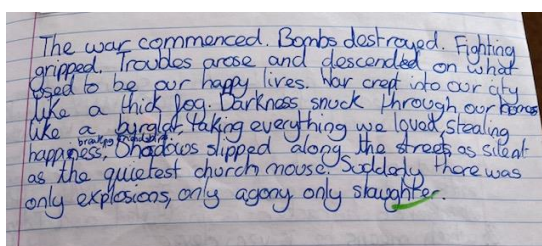 The war commenced. Bombs destroyed. Fighting
gripped. Troubles arose and descended on what
used to be our happy lives. War crept into our city
like a thick fog. Darkness snuck through our homes
like a burglar, taking everything we loved, stealing
happiness, Shadows slipped along the streets as silent
as the quietest church mouse. Suddenly there was
only explosions, only agony only slaughter.